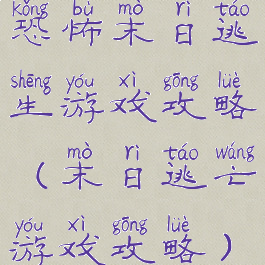 kǒng bù mò rì táo
恐怖末日逃
shēng yóu xì gōng lüè
生游戏攻略
mò rì táo wáng
(末日逃亡
yóu xì gōng lüè
游戏攻略)